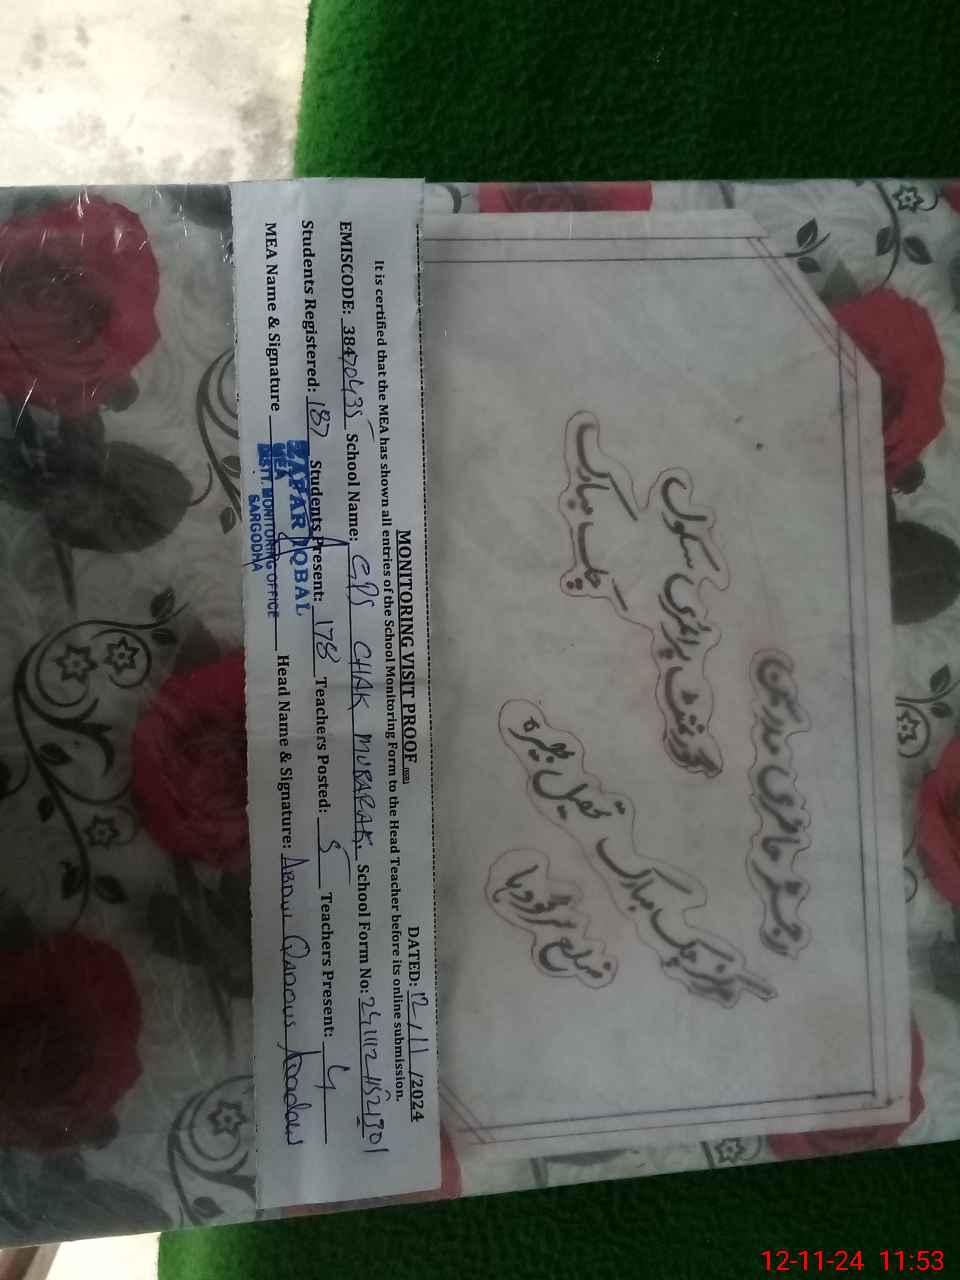 رجسٹر حاضری مدرسین
گورنمنٹ پرائمری سکول
چک مبارک
مرکز چک مبارک تحصیل بھیرہ
ضلع سرگودہا
MONITORING VISIT PROOF
DATED: 12/11/2024
It is certified that the MEA has shown all entries of the School Monitoring Form to the Head Teacher before its online submission.
EMISCODE: 38470435 School Name: GPS CHAK MUBARAK School Form No:
Students Registered: 187 Students Present: 178 Teachers Posted: 5 Teachers Present: 4
MEA Name & Signature Head Name & Signature: ABDUL QADDUS
ZAFAR IQBAL
MEA
DISTT. MONITORING OFFICE
SARGODHA
12-11-24 11:53